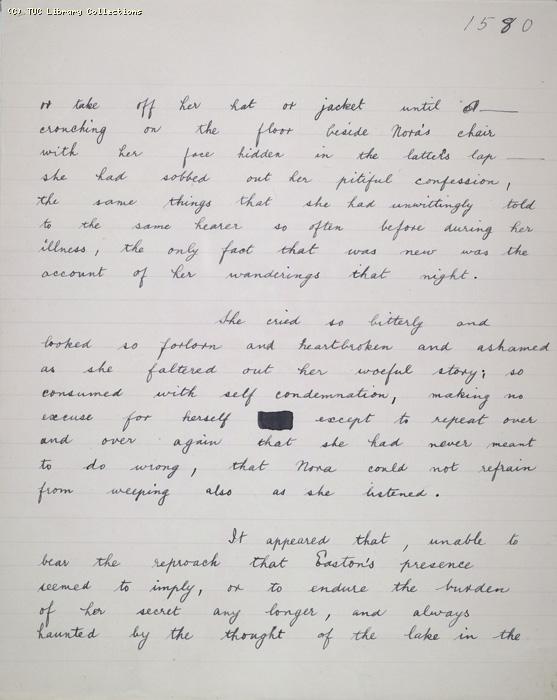 (C) TUC Library Collections
1580
or take off her hat or jacket until —
crouching on the floor beside Nora's chair
with her face hidden in the latter's lap —
she had sobbed out her pitiful confession,
the same things that she had unwittingly told
to the same hearer so often before during her
illness, the only fact that was new was the
account of her wanderings that night.
She cried so bitterly and
looked so forlorn and heartbroken and ashamed
as she faltered out her woeful story; so
consumed with self condemnation, making no
excuse for herself except to repeat over
and over again that she had never meant
to do wrong, that Nora could not refrain
from weeping also as she listened.
It appeared that, unable to
bear the reproach that Easton's presence
seemed to imply, or to endure the burden
of her secret any longer, and always
haunted by the thought of the lake in the